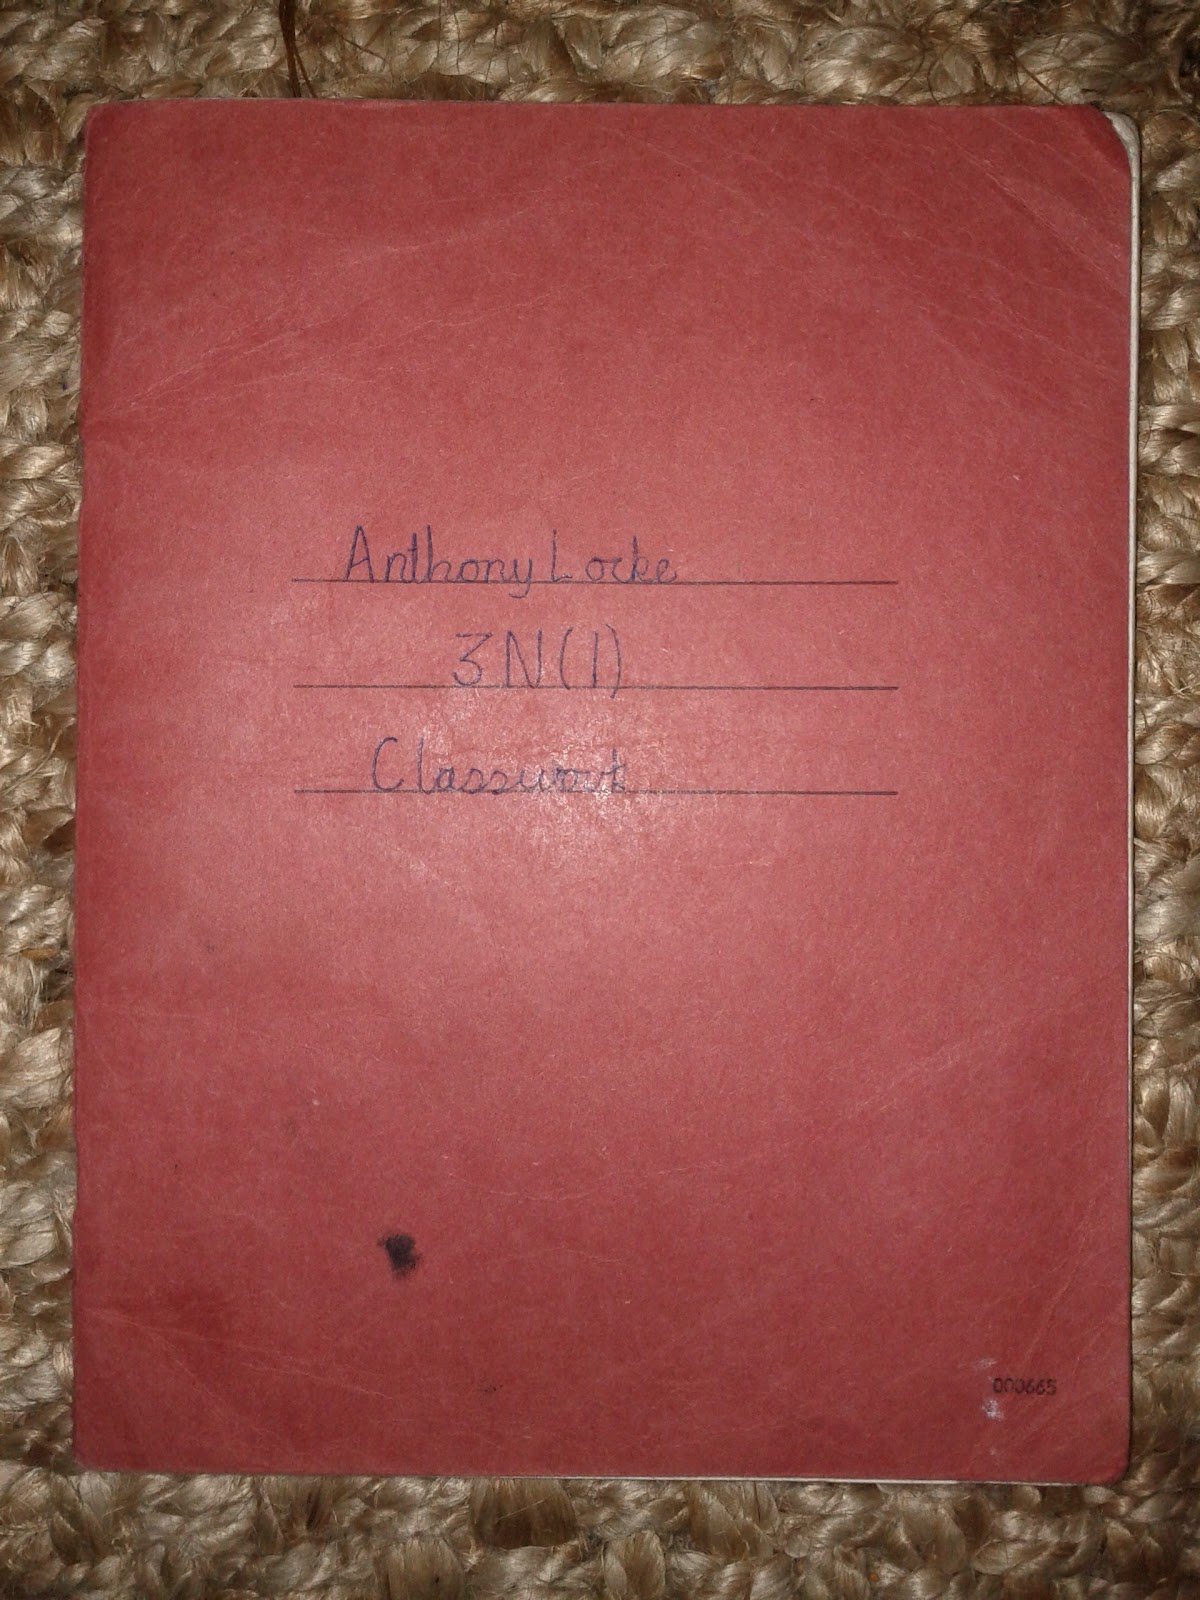 Anthony Locke
3N(1)
Classwork
000665